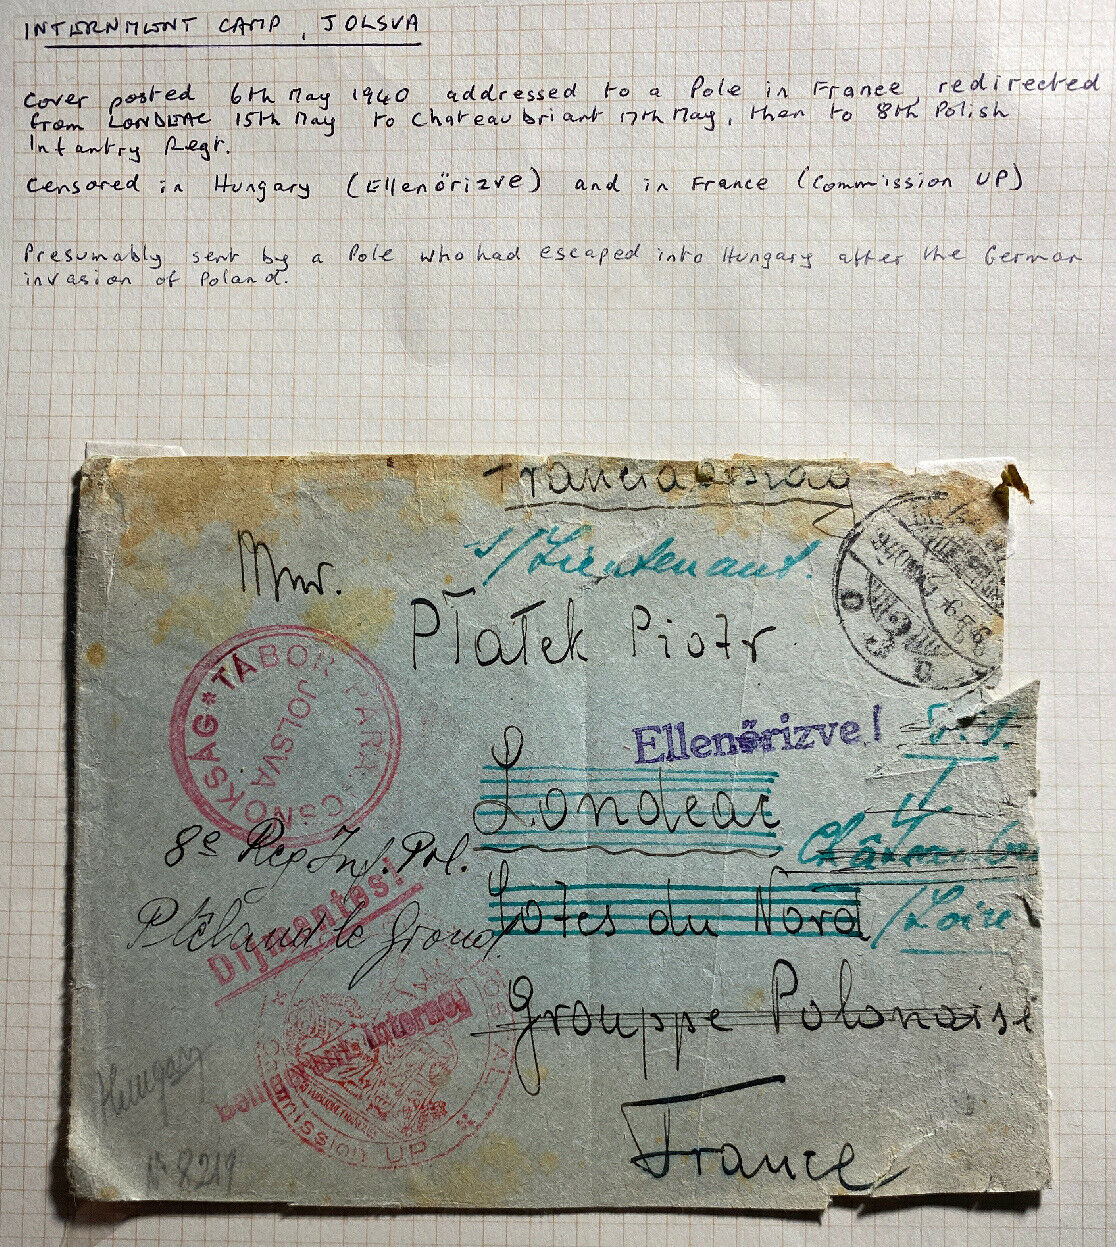 INTERNMENT CAMP, JOLSVA
Cover posted 6th May 1940 addressed to a Pole in France, redirected
from LONDEAC 15th May to Chateaubriant 17th May, then to 8th Polish
Infantry Regt.
Censored in Hungary (Ellenőrizve) and in France (Commission UP)
Presumably sent by a Pole who had escaped into Hungary after the German
invasion of Poland.
Franciaország
S/Lieutenant.
Mnr.
Płatek Piotr
TÁBOR PARANCSNOKSÁG
JOLSVA
Ellenőrizve!
Londeac
8e Reg Inf. Pol.
Cotes du Nord
/Loire
Díjmentes!
le Grand
Grouppe Polonaise
Commission UP
Hungary
France